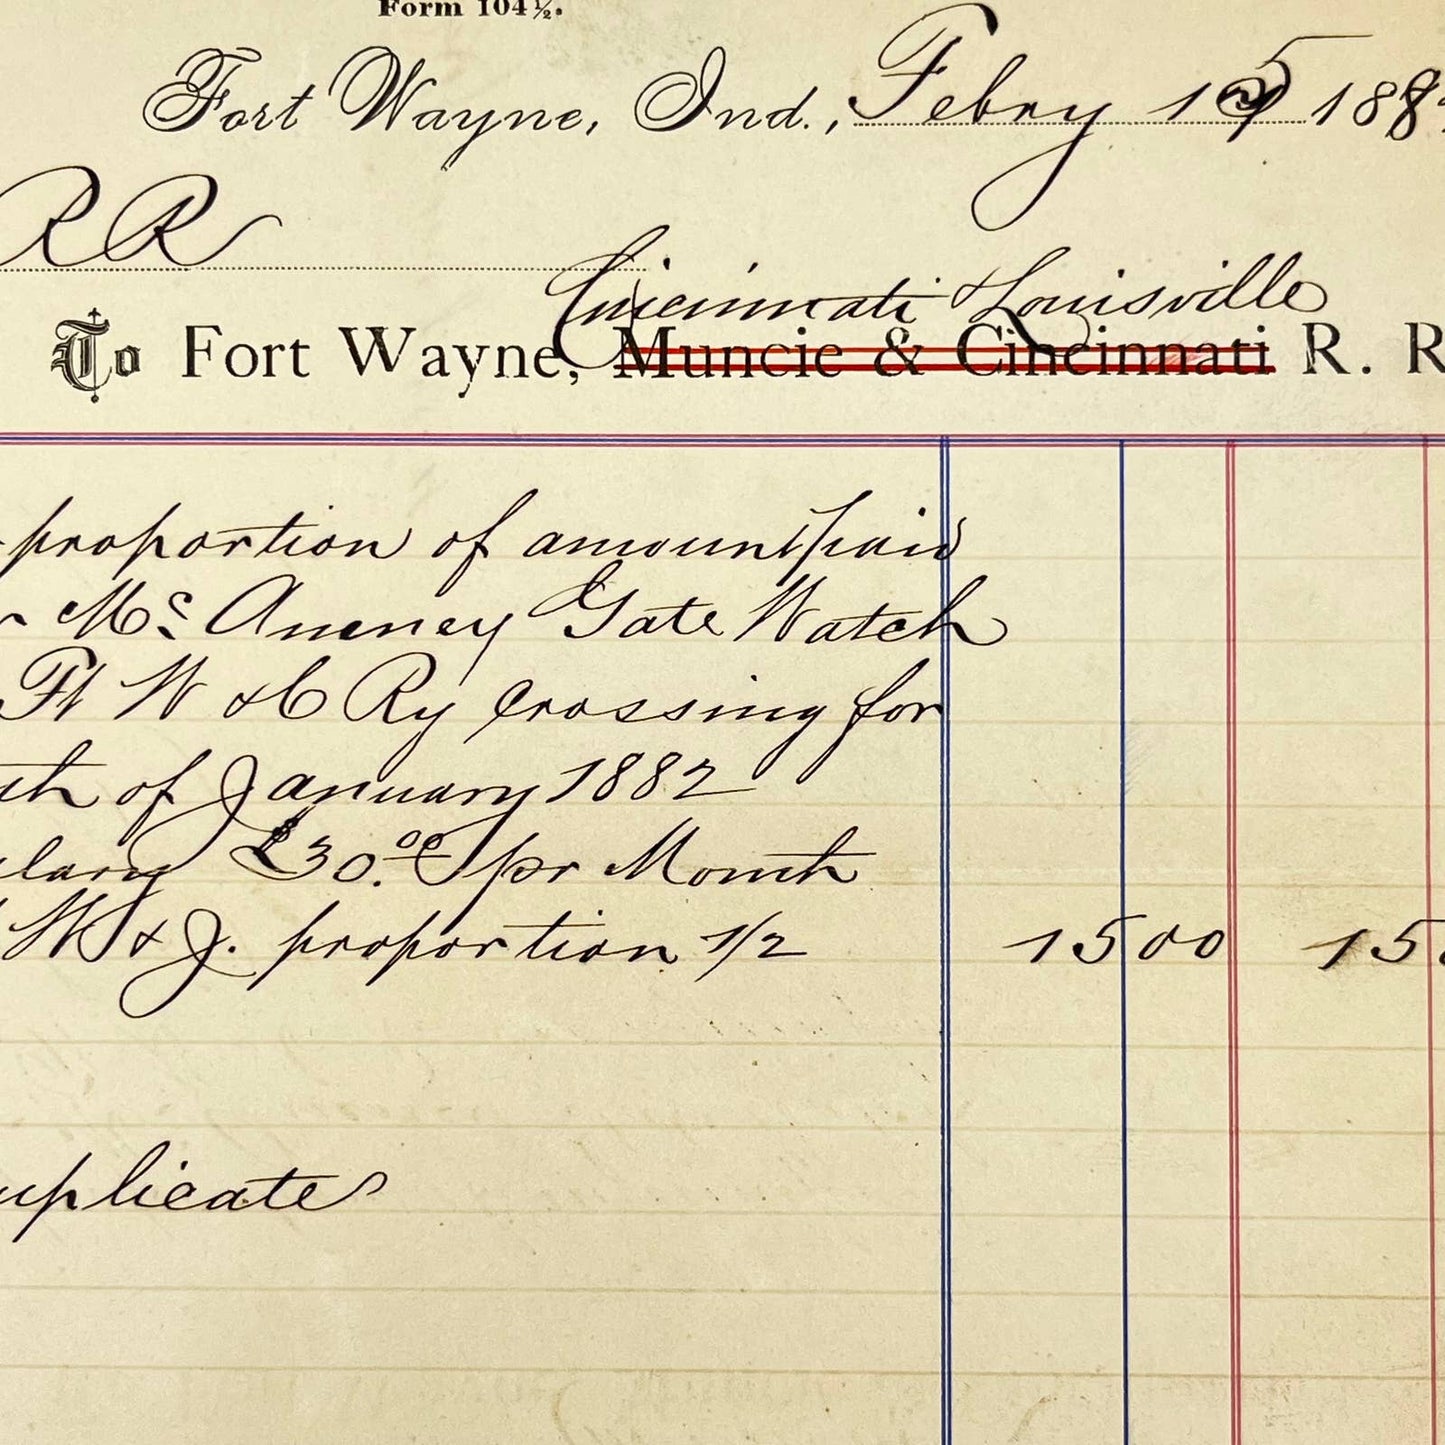 Form 104½.
Fort Wayne, Ind., Febry 15 188
R R
Cincinnati & Louisville
To Fort Wayne, Muncie & Cincinnati R. R
proportion of amount paid
Mc Aneney Gate Watch
Ft W & C Ry Crossing for
of January 1882
$30.00 pr Month
W & J. proportion 1/2 15 00 15
uplicate